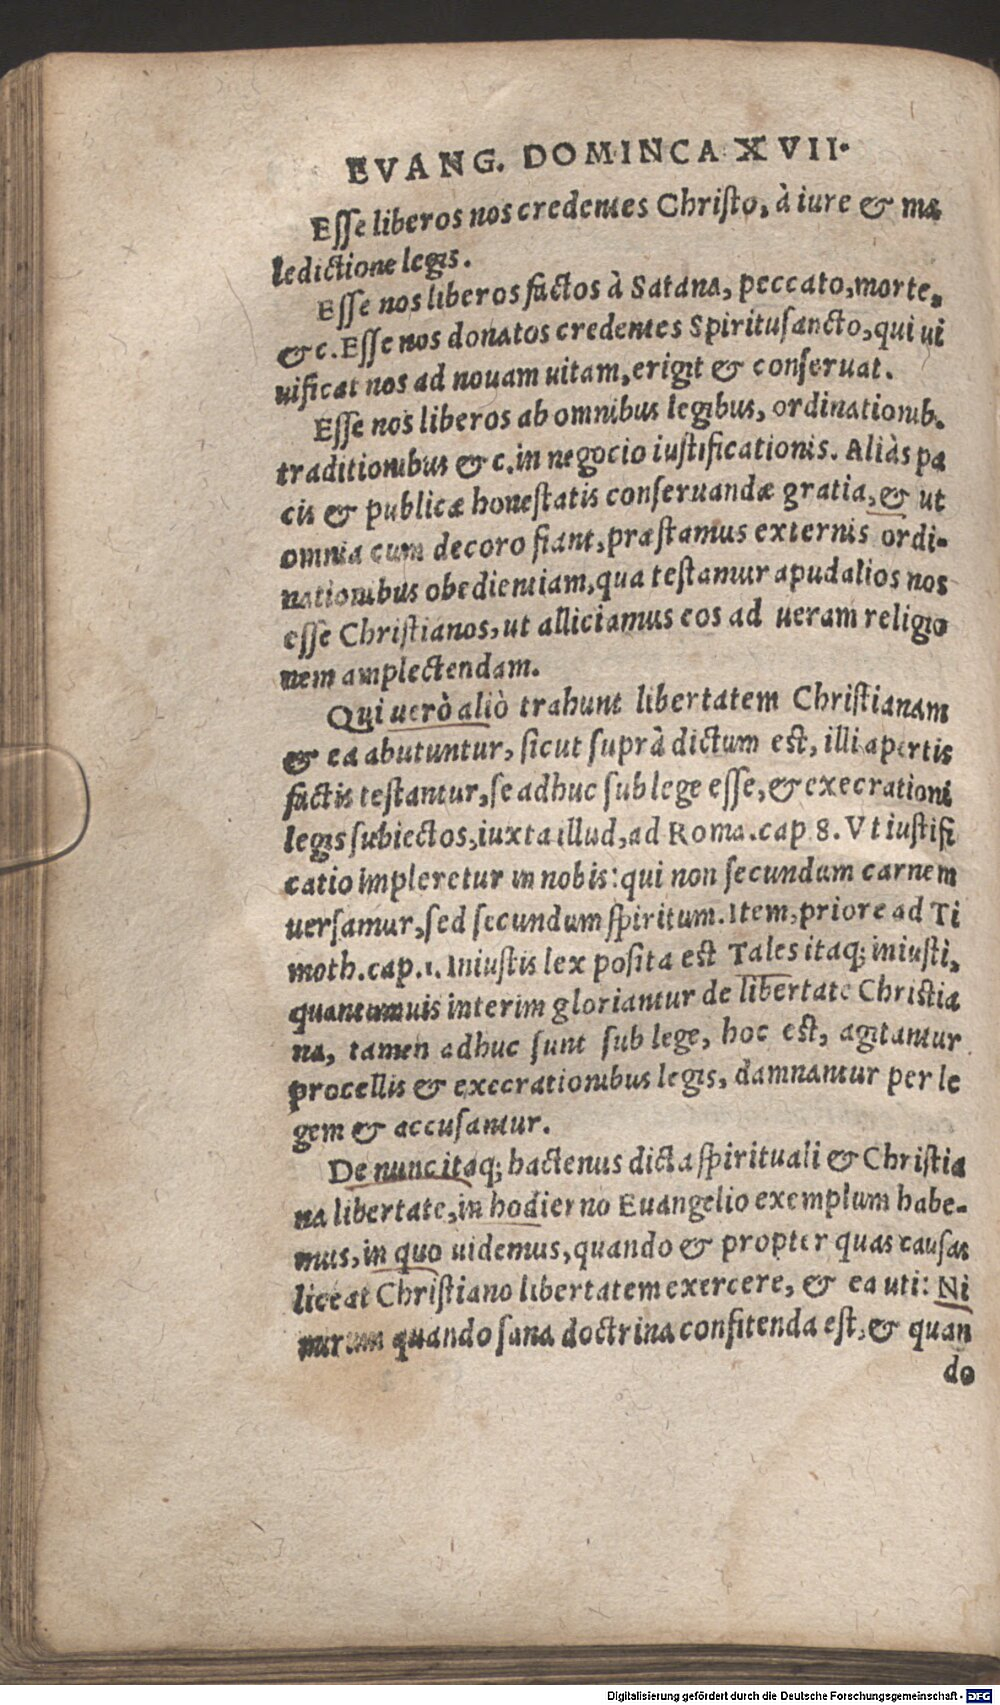 EVANG. DOMINCA XVII.
Esse liberos nos credentes Christo, à iure & ma
ledictione legis.
Esse nos liberos factos à Satana, peccato, morte,
&c. Esse nos donatos credentes Spiritusancto, qui ui
uificat nos ad nouam uitam, erigit & conseruat.
Esse nos liberos ab omnibus legibus, ordinationib.
traditionibus &c. in negocio iustificationis. Aliàs pa
cis & publicæ honestatis conseruandæ gratia, & ut
omnia cum decoro fiant, præstamus externis ordi-
nationibus obedientiam, qua testamur apud alios nos
esse Christianos, ut alliciamus eos ad ueram religio
nem amplectendam.
Qui uerò aliò trahunt libertatem Christianam
& ea abutuntur, sicut suprà dictum est, illi apertis
factis testantur, se adhuc sub lege esse, & execrationi
legis subiectos, iuxta illud, ad Roma. cap 8. Vt iustifi
catio impleretur in nobis: qui non secundum carnem
uersamur, sed secundum spiritum. Item, priore ad Ti
moth. cap. 1. Iniustis lex posita est Tales itaq; iniusti,
quantumuis interim gloriantur de libertate Christia
na, tamen adhuc sunt sub lege, hoc est, agitantur
procellis & execrationibus legis, damnantur per le
gem & accusantur.
De nunc itaq; hactenus dicta spirituali & Christia
na libertate, in hodierno Euangelio exemplum habe-
mus, in quo uidemus, quando & propter quas causas
liceat Christiano libertatem exercere, & ea uti: Ni
mirum quando sana doctrina confitenda est, & quan
do
Digitalisierung gefördert durch die Deutsche Forschungsgemeinschaft - DFG